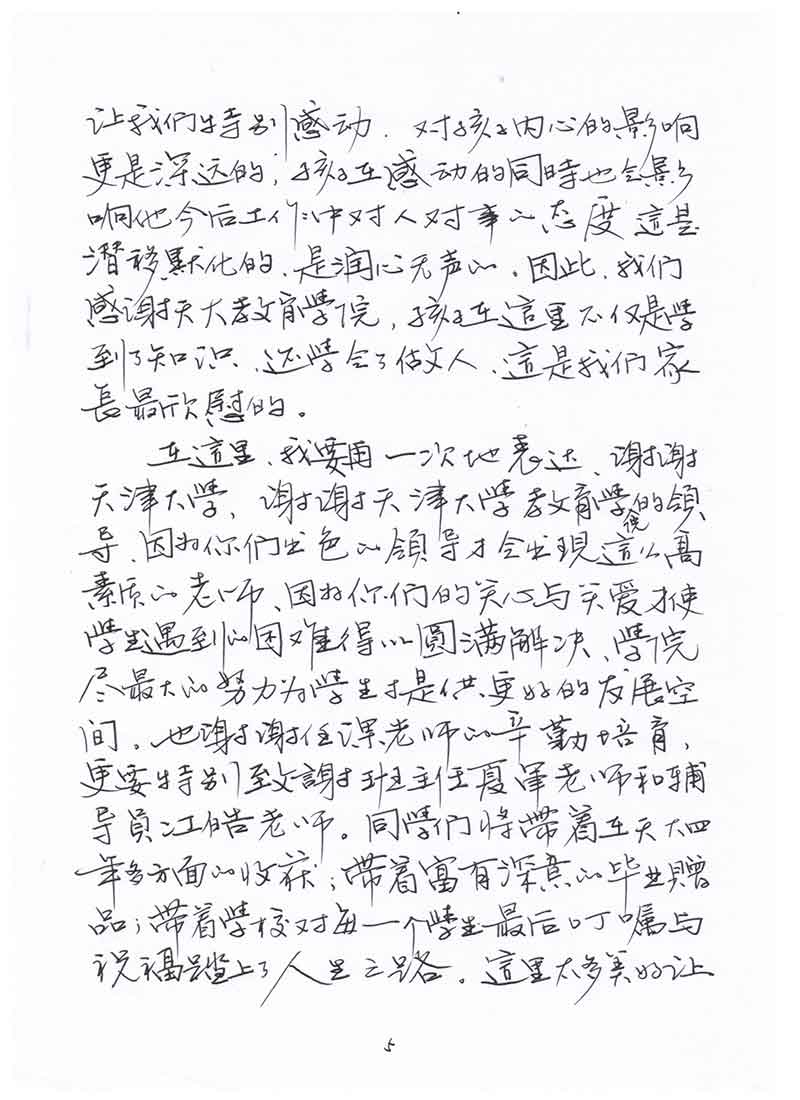 让我们特别感动．对孩子内心的影响
更是深远的；孩子在感动的同時也会影
响他今后工作中对人对事的态度 這是
潜移默化的、是润心无声的。因此、我们
感谢天大教育學院，孩子在這里不仅是學
到了知识、还學会了做人、這是我们家
長最欣慰的。
在這里、我要再一次地表达、谢谢
天津大學、谢谢天津大學教育學院的領
导、因为你们出色的領导才会出現這么高
素质的老师、因为你们的关心与关爱才使
學生遇到的困难得以圓满解决、學院
尽最大的努力为學生提供更好的发展空
间。也谢谢任课老师的辛勤培育，
更要特别致謝班主任夏軍老师和辅
导員江皓老师。同學们将带着在天大四
年多方面的收获；带着富有深意的毕业贈
品；带着學校对每一个學生最后叮嘱与
祝福踏上了人生之路。這里太多美好让
5